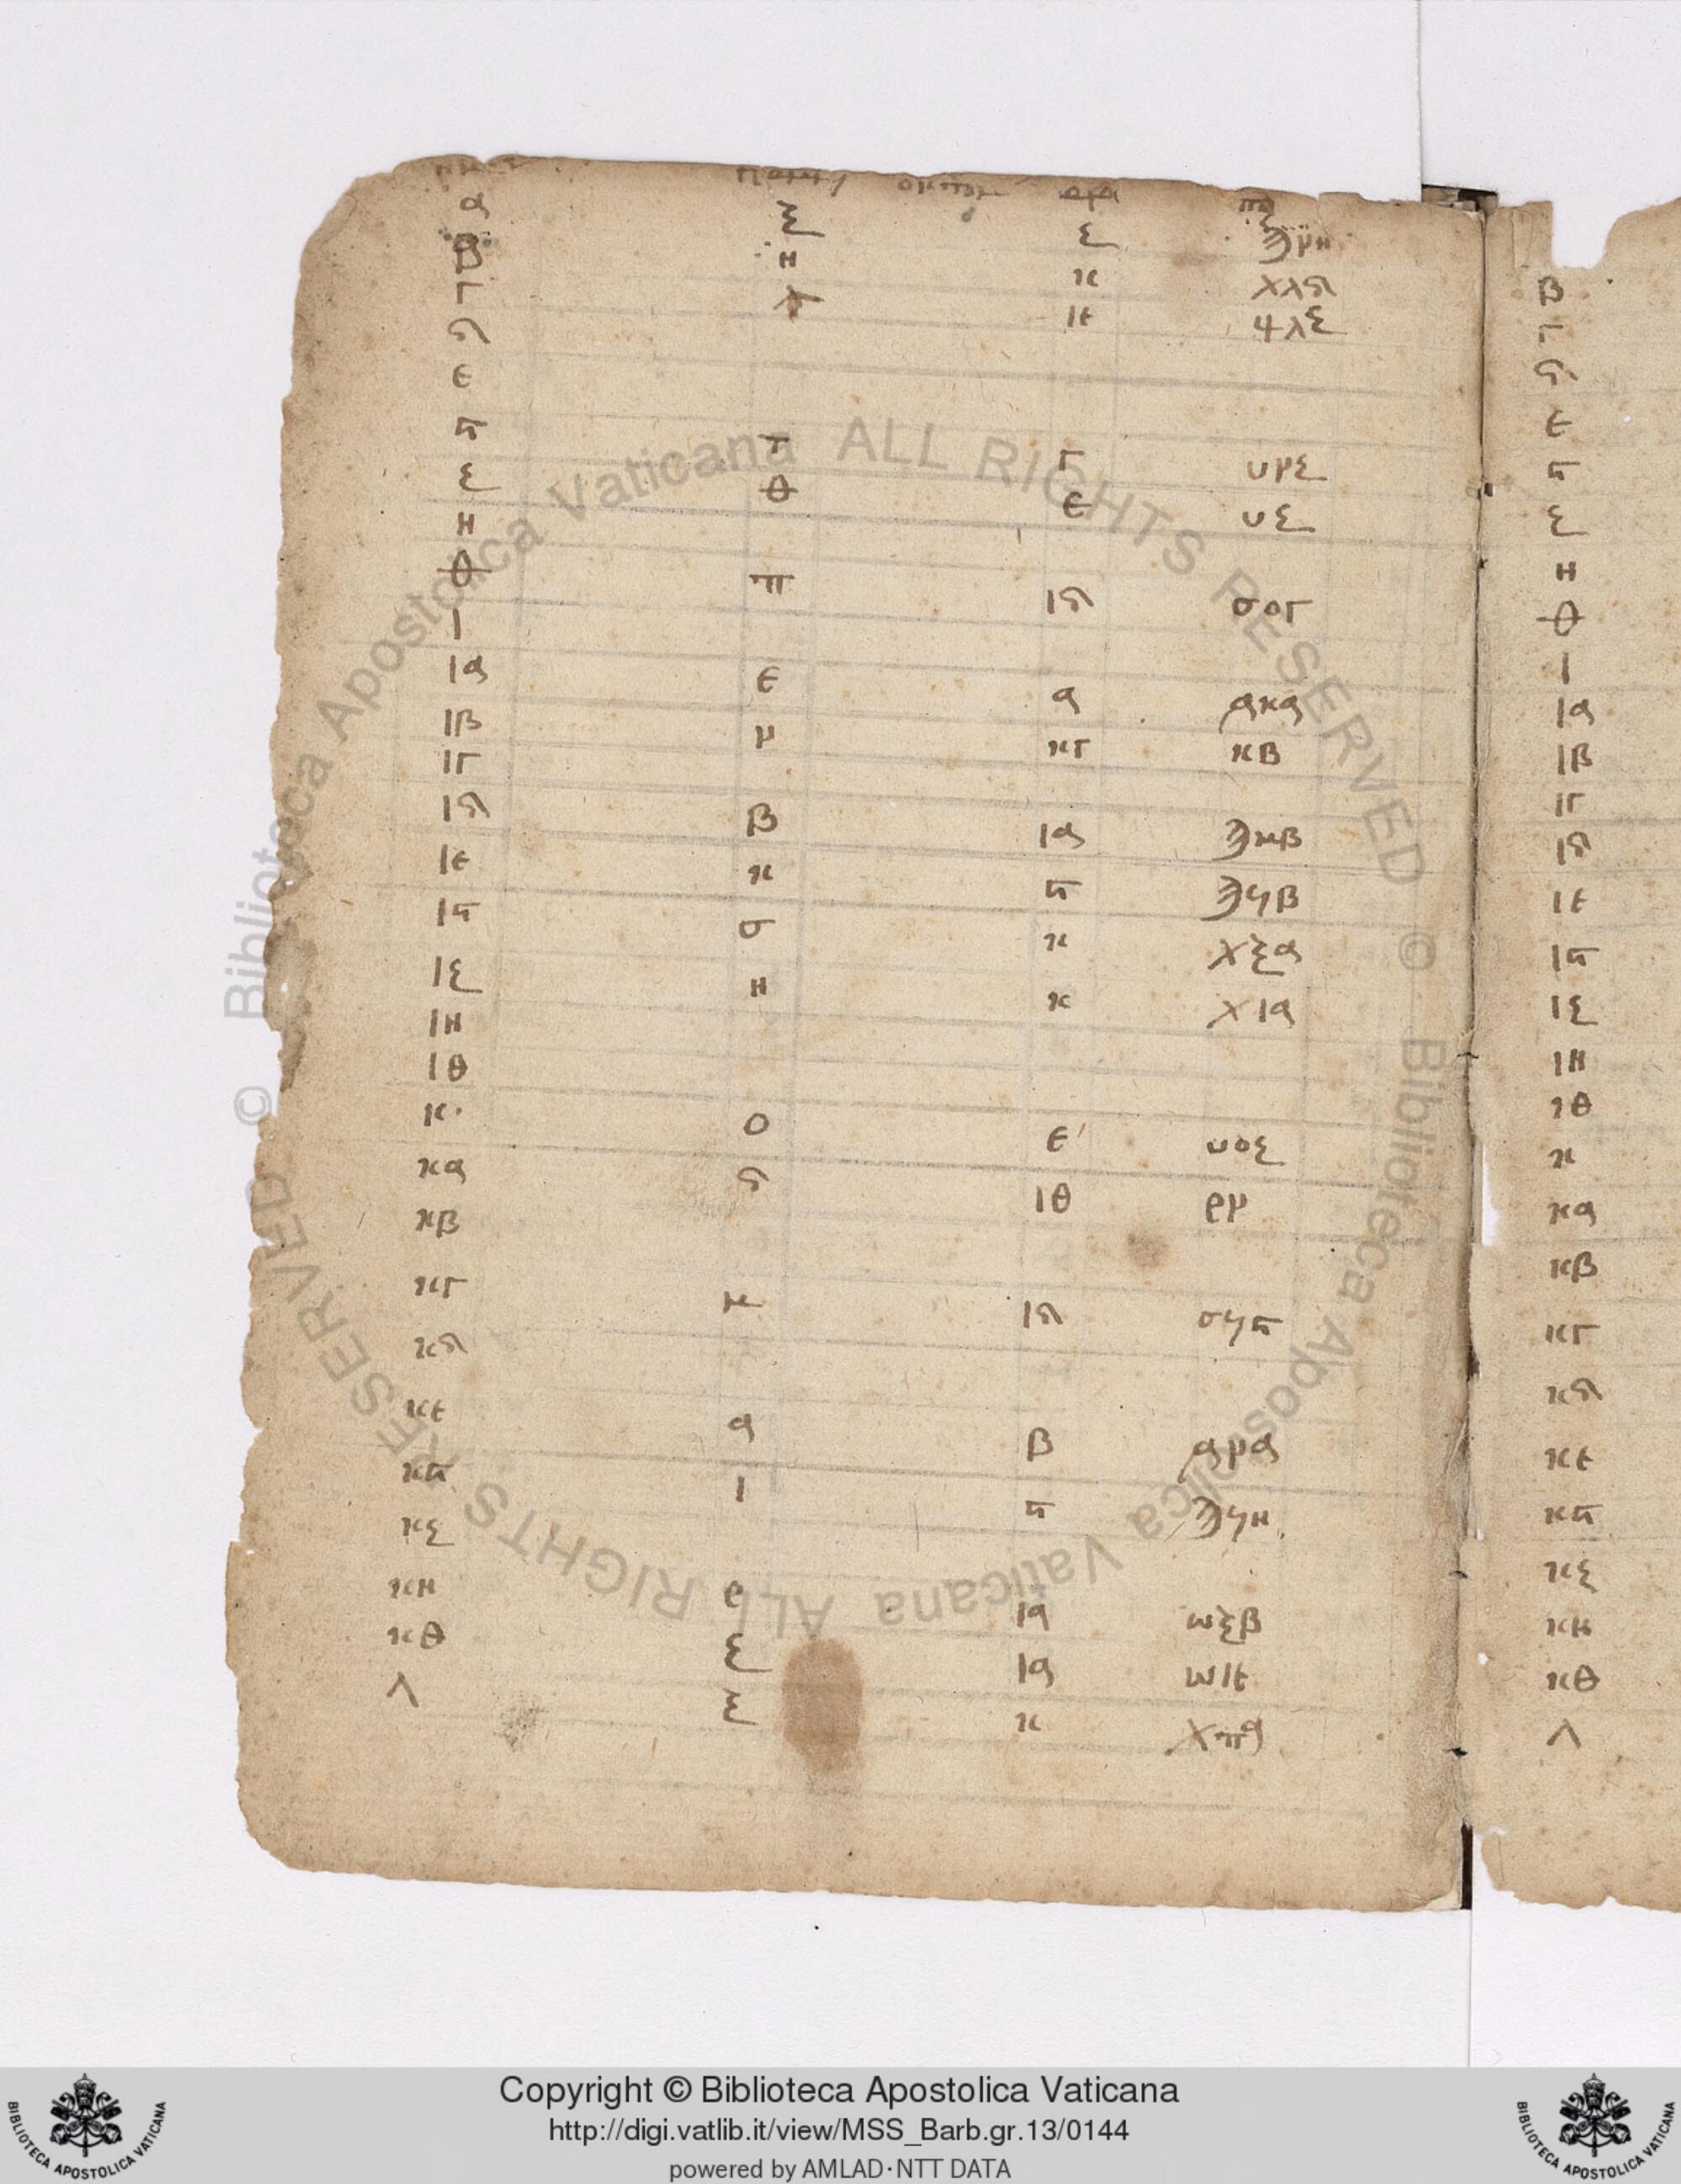 α ξ ζ ϡμη
β η κ χλδ
γ ιε ψλζ
δ
ε
ϛ τ γ υμζ
ζ θ ε υζ
η
θ π ιδ σογ
ι
ια ε α ͵ακα
ιβ μ κγ κβ
ιγ
ιδ β ια ϡκβ
ιε κ ϛ ϡϟβ
ιϛ σ κ χξα
ιζ η κ χια
ιη
ιθ
κ ο ε υοζ
κα δ ιθ ρμ
κβ
κγ ιδ σϟϛ
κδ
κε α β ͵αμα
κϛ ι ϛ ϡϟη
κζ
κη ρ ια ωξβ
κθ ζ ια ωιε
λ ξ κ χπα
β
γ
δ
ε
ϛ
ζ
η
θ
ι
ια
ιβ
ιγ
ιδ
ιε
ιϛ
ιζ
ιη
ιθ
κ
κα
κβ
κγ
κδ
κε
κϛ
κζ
κη
κθ
λ
© Biblioteca Apostolica Vaticana ALL RIGHTS RESERVED
© Biblioteca Apostolica Vaticana ALL RIGHTS RESERVED
Copyright © Biblioteca Apostolica Vaticana
http://digi.vatlib.it/view/MSS_Barb.gr.13/0144
powered by AMLAD·NTT DATA
BIBLIOTECA APOSTOLICA VATICANA
BIBLIOTECA APOSTOLICA VATICANA